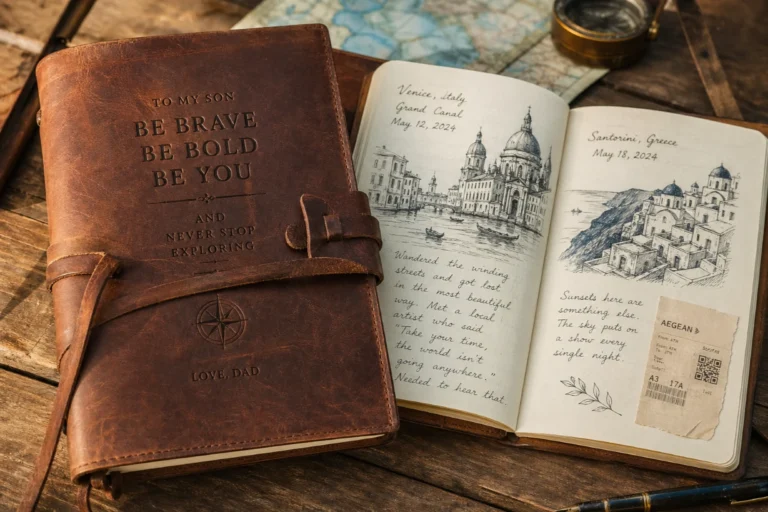 TO MY SON
BE BRAVE
BE BOLD
BE YOU
AND
NEVER STOP
EXPLORING
LOVE, DAD
Venice, Italy
Grand Canal
May 12, 2024
Wandered the winding
streets and got lost
in the most beautiful
way. Met a local
artist who said
"Take your time,
the world isn't
going anywhere."
Needed to hear that.
Santorini, Greece
May 18, 2024
Sunsets here are
something else.
The sky puts on
a show every
single night.
AEGEAN
A3 17A